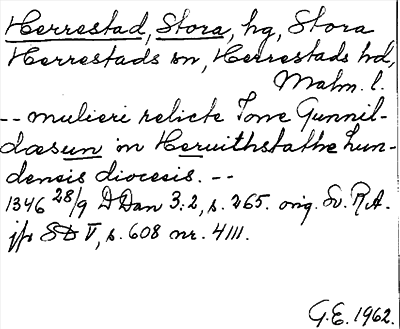 Herrestad, Stora, hg, Stora
Herrestads sn, Herrestads hd,
Malm. l.
-- mulieri relicte Tone Gunnil-
dæsun in Heruithstathe Lun-
densis diocesis. --
1346 28/9 DDan 3:2, s. 265. orig. Sv. R.A.
jfr SD V, s. 608 nr. 4111.
G.E. 1962.